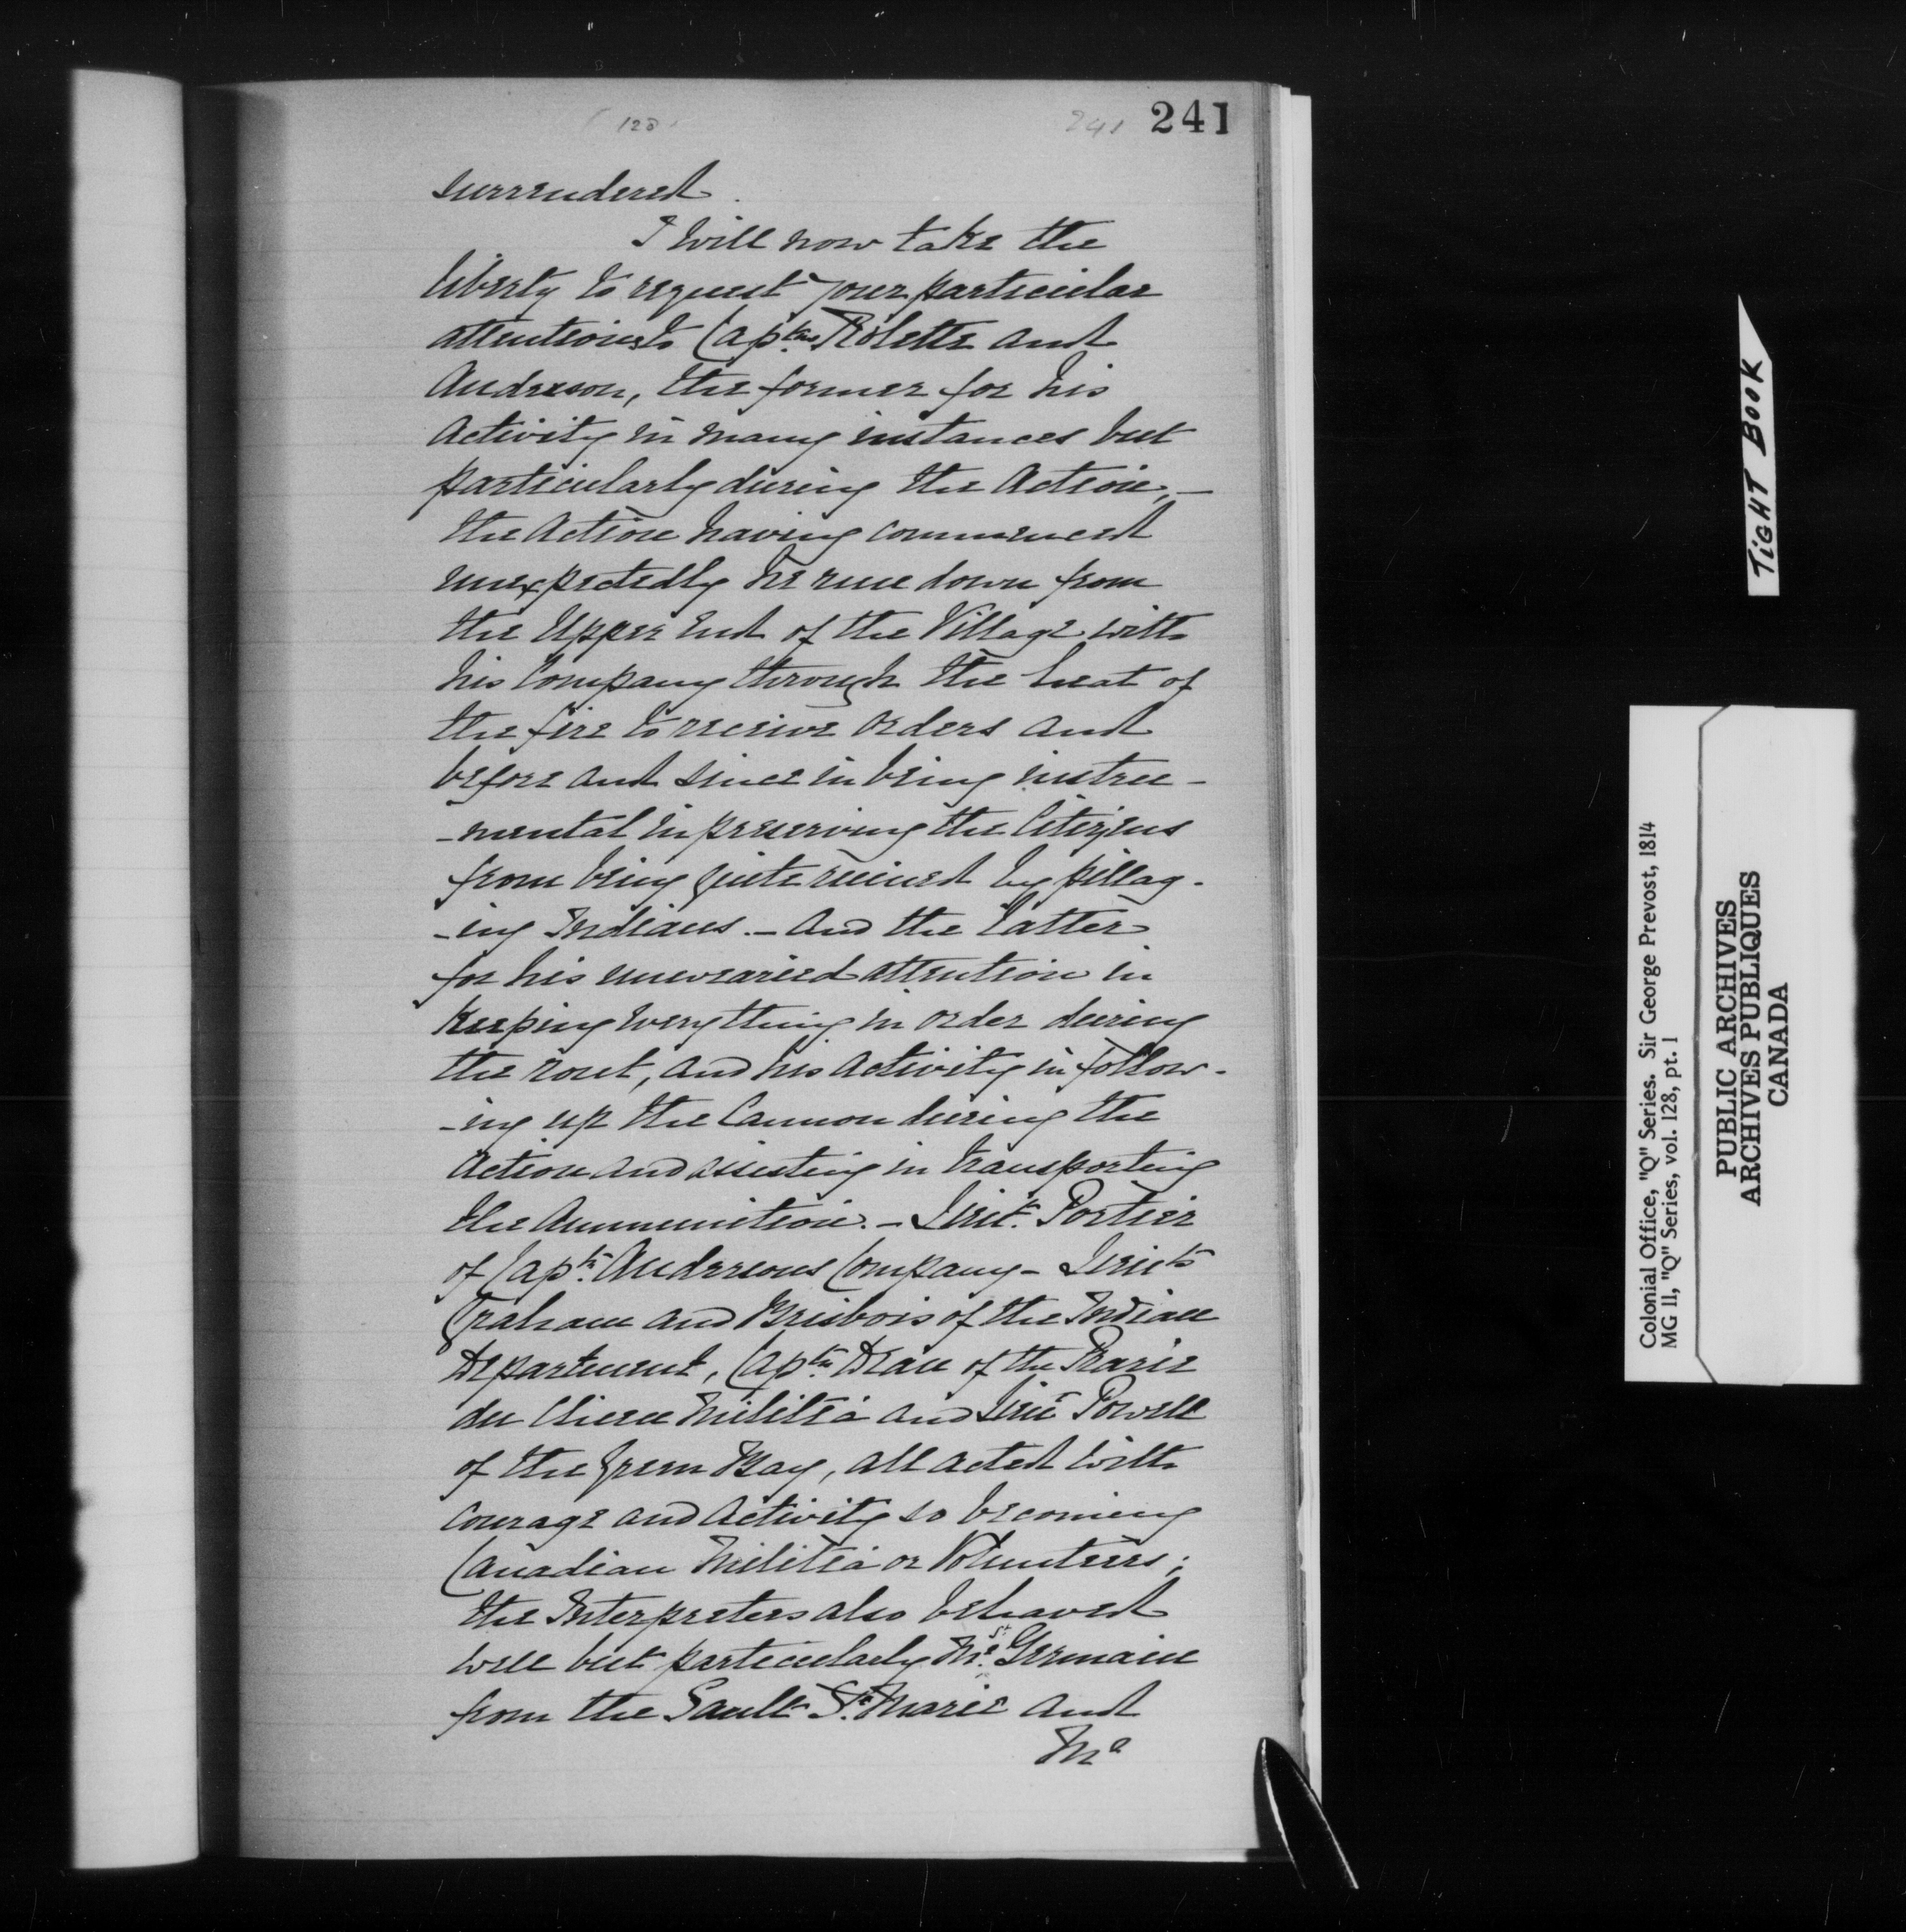 128
241 241
surrendered.
I will now take the
liberty to request your particular
attentions to Captns Rolette and
Anderson, the former for his
activity in many instances but
particularly during the Action,—
the Action having commenced
unexpectedly he run down from
the Upper End of the Village with
his Company through the heat of
the fire to receive Orders and
before and since in being instru-
-mental in preserving the Citizens
from being quite ruined by pillag-
-ing Indians.— And the latter
for his unwearied attention in
Keeping everything in order during
the rout, and his activity in follow-
-ing up the Cannon during the
Action and assisting in transporting
the Ammunition.— Lieut. Portier
of Captn. Andersons Company— Lieuts
Graham and Brisbois of the Indian
Department, Captn. Dean of the Prarie
du Chien Militia and Lieut Powell
of the Green Bay, all acted with
courage and activity so becoming
Canadian Militia or Volunteers;
the Interpreters also behaved
well but particularly Mr. St. Germain
from the Sault St. Marie and
Mr
TIGHT BOOK
Colonial Office, "Q" Series. Sir George Prevost, 1814
MG 11, "Q" Series, vol. 128, pt. 1
PUBLIC ARCHIVES
ARCHIVES PUBLIQUES
CANADA